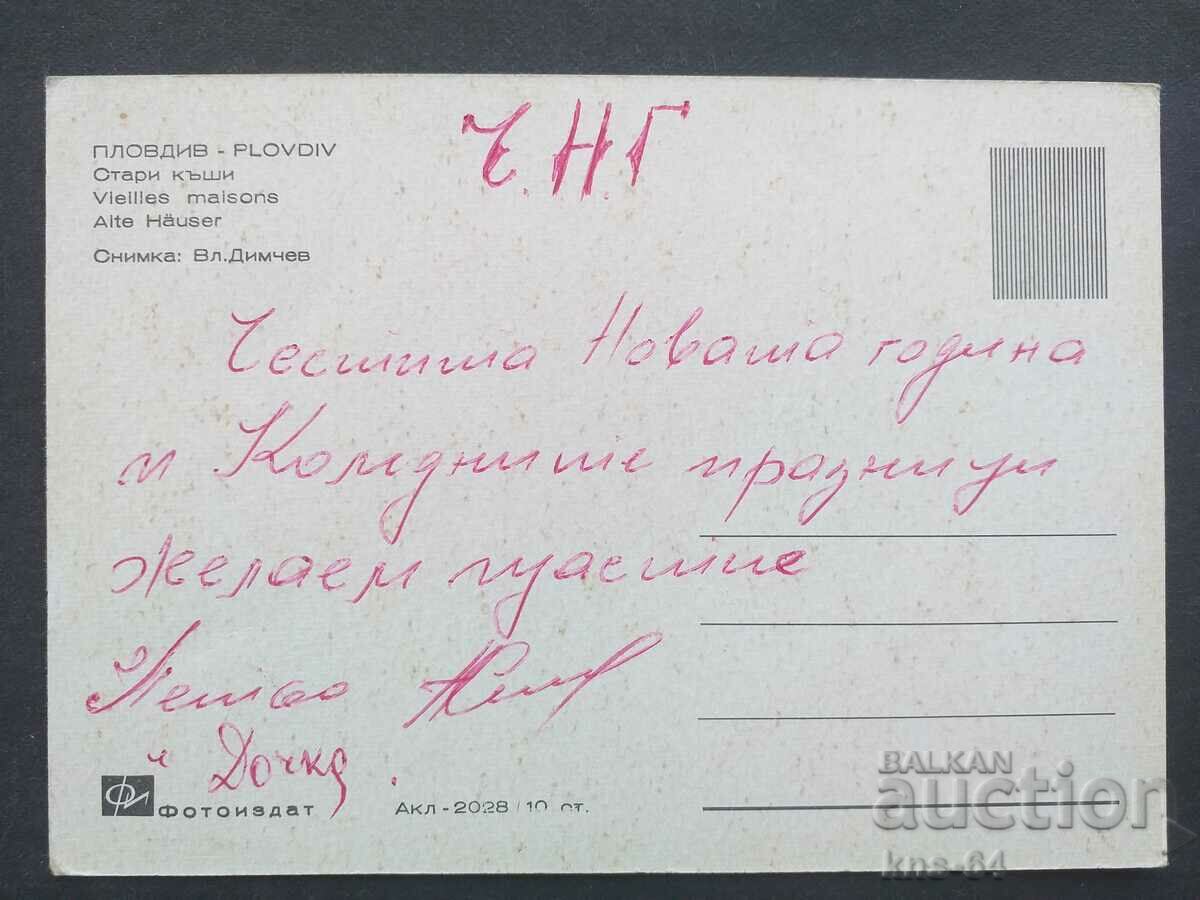 Ч.Н.Г
ПЛОВДИВ - PLOVDIV
Стари къши
Vieilles maisons
Alte Häuser
Снимка: Вл.Димчев
Честита Новата година
и Коледните празници
желаем щастие
Петко
и Дочка.
ФИ Фотоиздат
Акл-2028/10 ст.
BALKAN
auction
kns-64